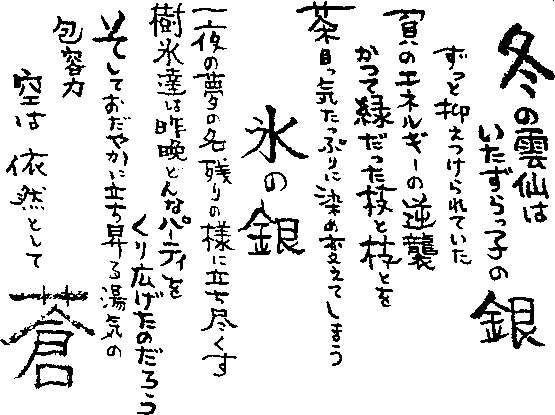 冬の雲仙は
いたずらっ子の
銀
ずっと抑えつけられていた
負のエネルギーの逆襲
かつて緑だった枝と枝とを
茶目っ気たっぷりに染め変えてしまう
氷の銀
一夜の夢の名残りの様に立ち尽くす
樹氷達は昨晩どんなパーティを
くり広げたのだろう
そしておだやかに立ち昇る湯気の
包容力
空は依然として
蒼